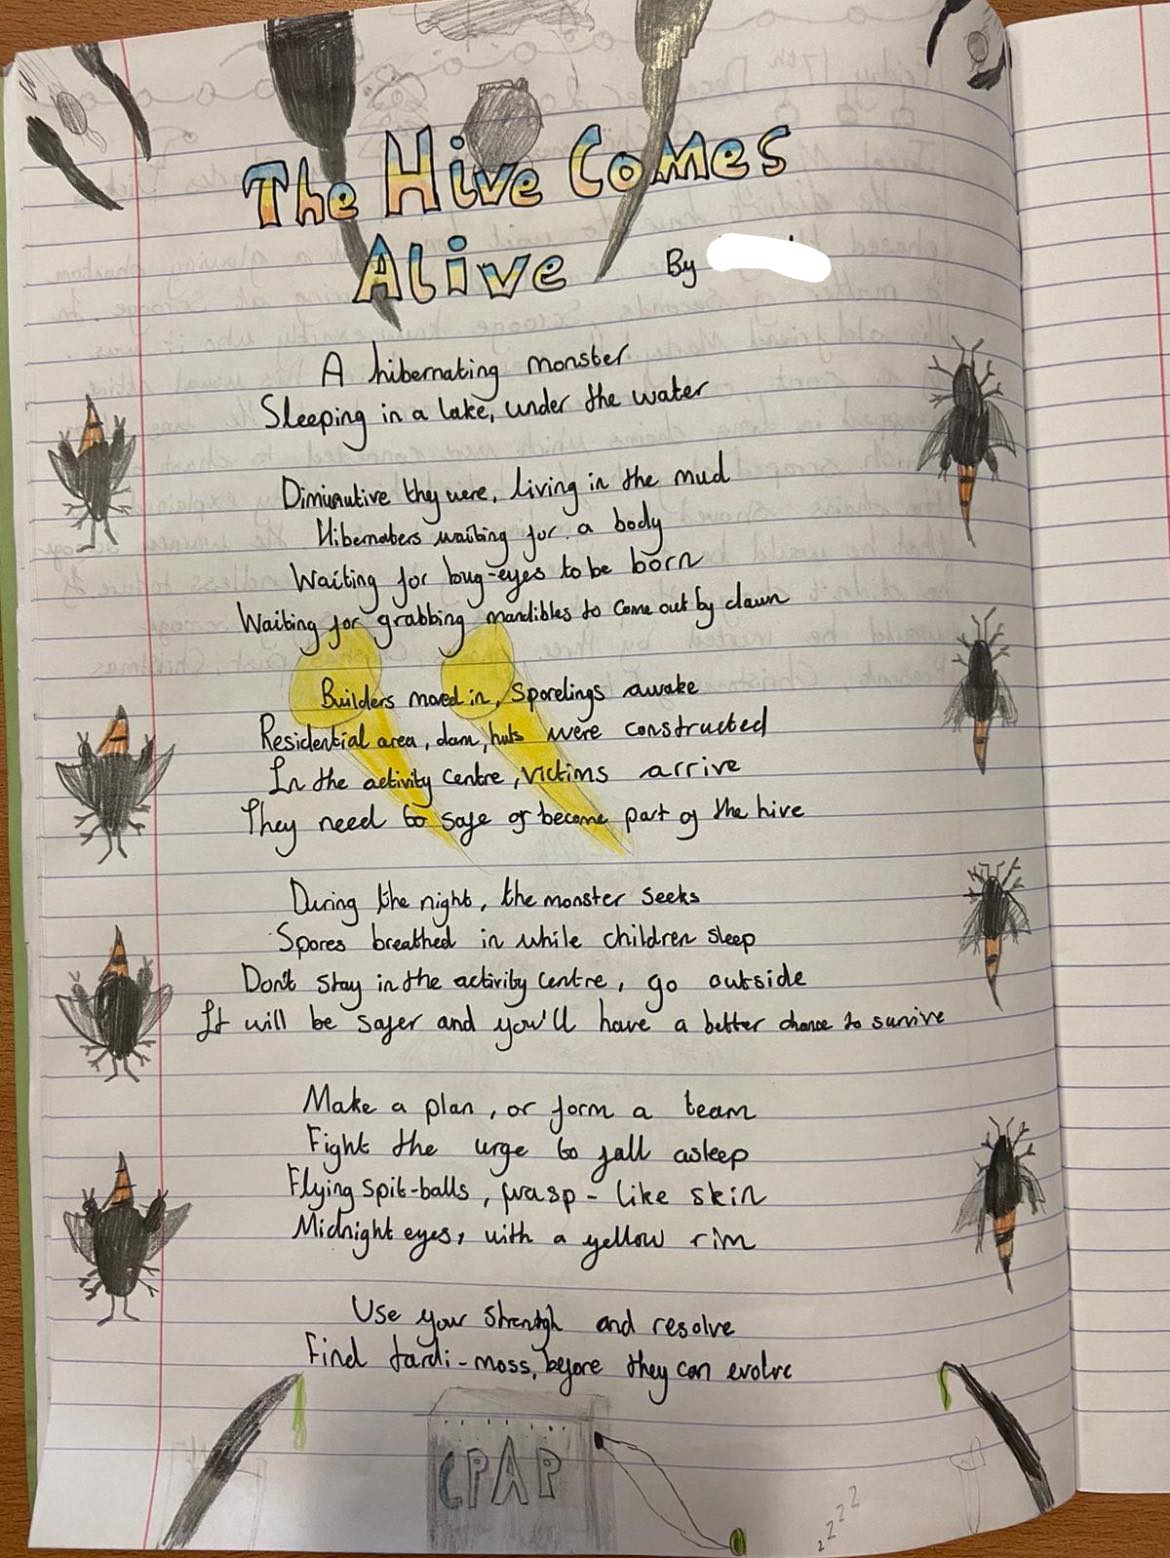 The Hive Comes
Alive
By
A hibernating monster
Sleeping in a lake, under the water
Diminutive they were, living in the mud
Hibernaters waiting for a body
Waiting for bug-eyes to be born
Waiting for grabbing mandibles to come out by dawn
Builders moved in, Sporelings awake
Residential area, dam, huts were constructed
In the activity centre, victims arrive
They need to safe or become part of the hive
During the night, the monster seeks
Spores breathed in while children sleep
Don't stay in the activity centre, go outside
It will be safer and you'll have a better chance to survive
Make a plan, or form a team
Fight the urge to fall asleep
Flying spit-balls, wasp-like skin
Midnight eyes, with a yellow rim
Use your and resolve
Find tardi-moss, before they can evolve
CPAP
zzzz